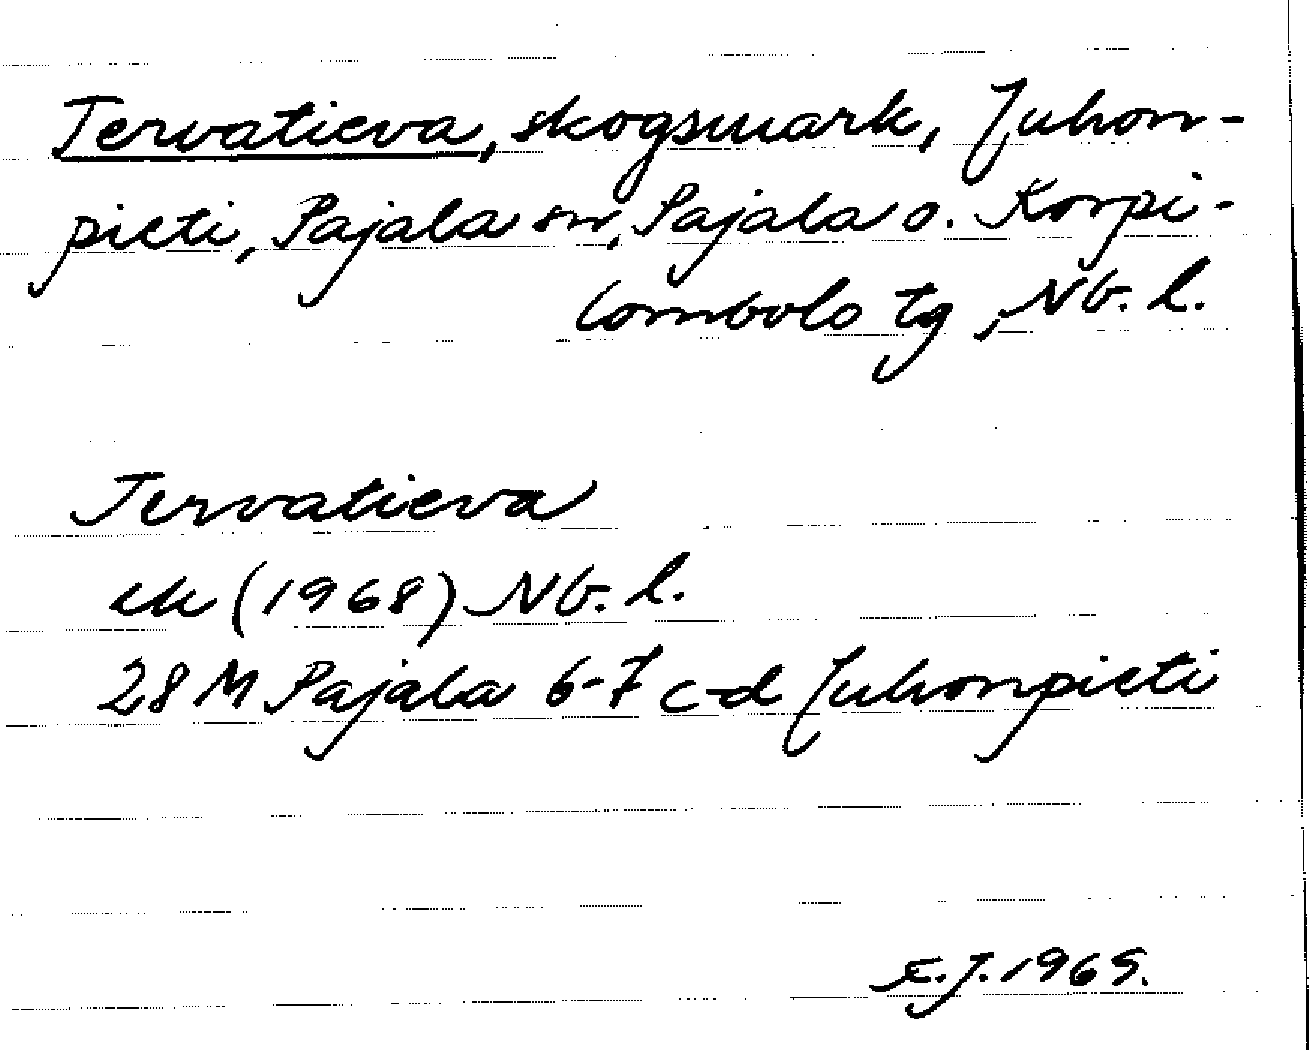 Tervatieva, skogsmark, Juhon-
pieti, Pajala sn, Pajala o. Korpi-
lombolo tg, Nb. l.
Tervatieva
ek (1968) Nb. l.
28 M Pajala 6-7 c-d Juhonpieti
E.J. 1969.